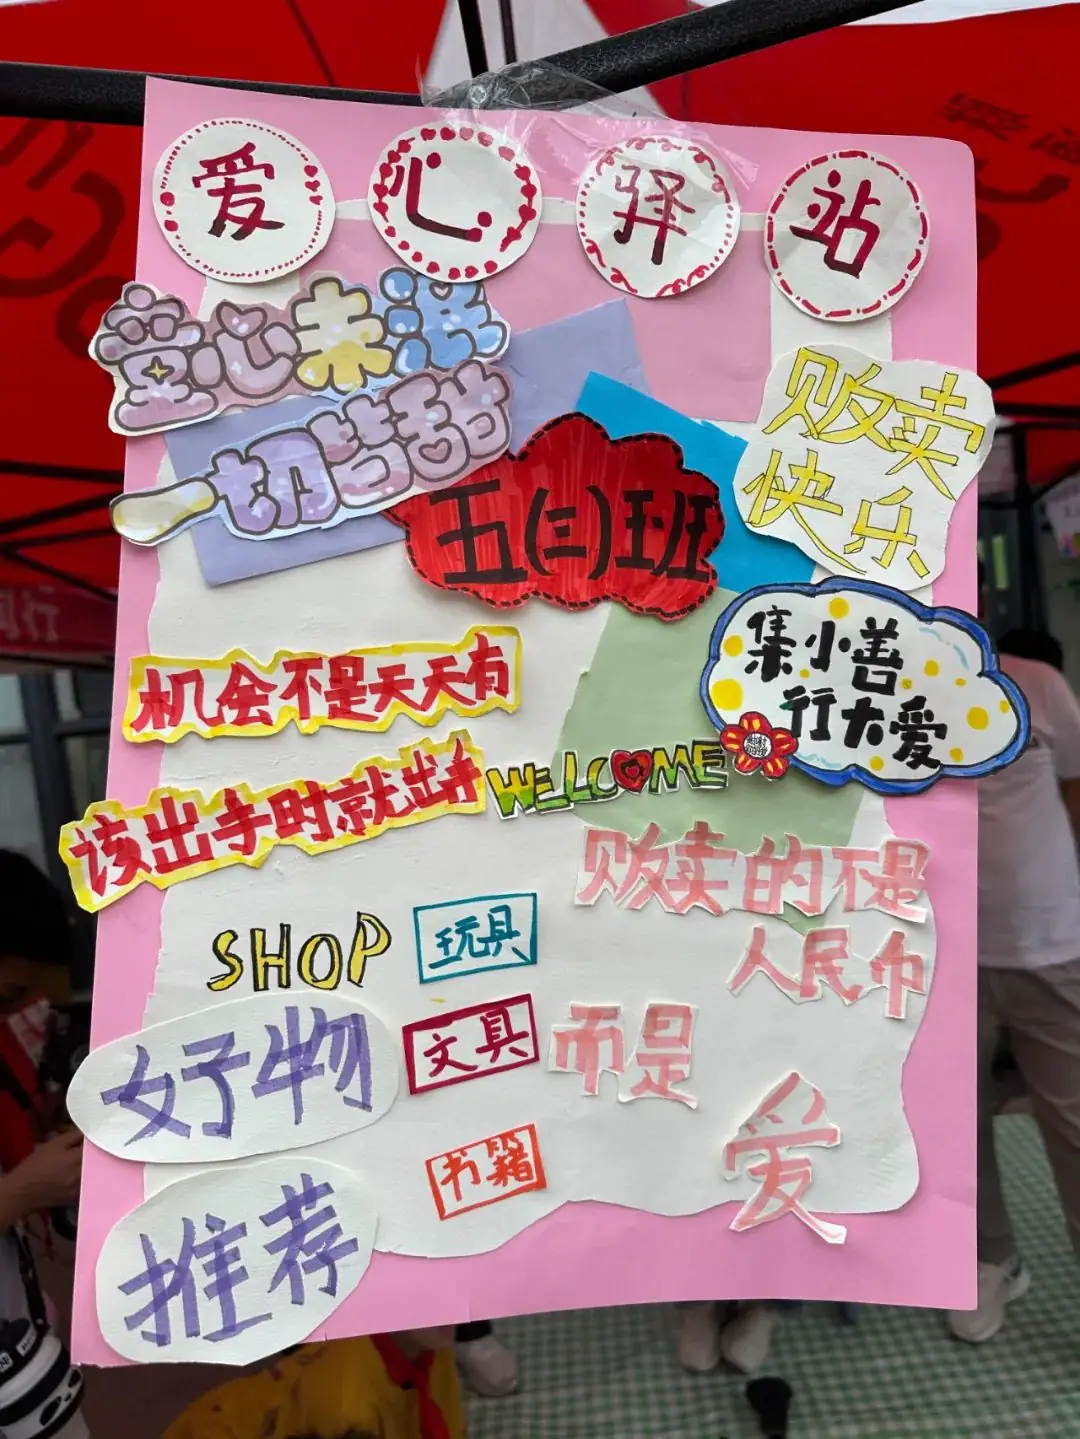 爱心驿站
童心未泯
一切皆甜
贩卖
快乐
五(三)班
集小善
行大爱
机会不是天天有
该出手时就出手
WELCOME
贩卖的不是
人民币
而是
爱
SHOP
玩具
文具
书籍
好物
推荐
同行